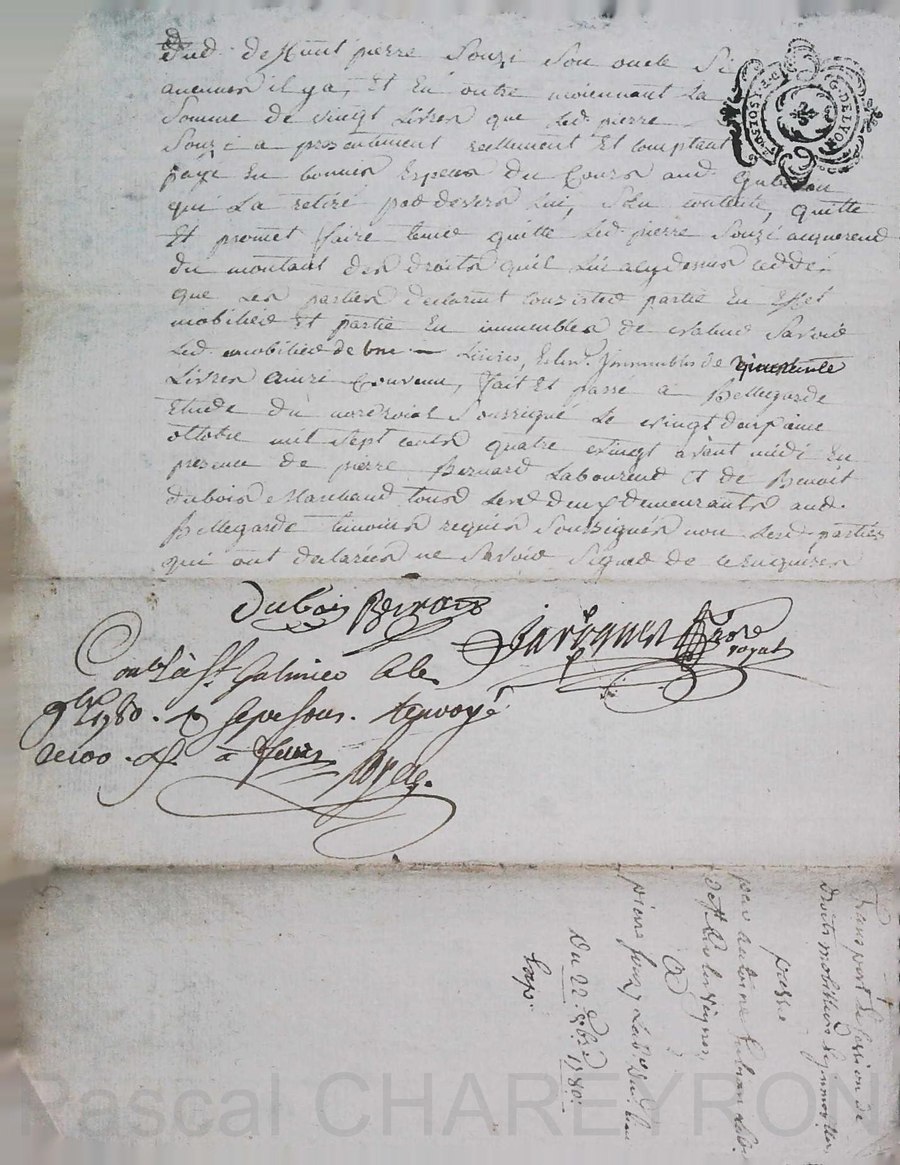 dud. deffunt pierre Souzi Son oncle Si
aucuns il ya, Et En outre moiennant La
Somme de vingt Livres que led. pierre
Souzi a presentement reellement Et comptant
payé En bonnes Especes du Cours aud.
qui La retiré pardevers Lui, S'En contente, quitte
Et promet faire tenir quitte led. pierre Souzi acquereur
du montant des droits qu'il lui a cydessus cedde.
que Les parties declarent consister partie En Effet
mobilier Et partie En immeubles de valeur Savoir
Led. mobilier de Livres, Immeubles de
Livres Ainsi Convenu, fait Et passé a Bellegarde
Etude du no.re roial Soussigné Le vingt deuxieme
ottobre mil Sept cents quatre vingt avant midi En
presence de pierre Bernard Laboureur Et de Benoit
dubois Marchand tous Les deux demeurants aud.
Bellegarde temoins requis Soussignés non Lesd. parties
qui ont declarées ne Savoir Signer de ce Enquises
Dubois Bernard
no.re royal
Con.lé à S.t Galmier le
9bre 1780. Sous. Renvoyé
à feurs
G. DE LYON
Transport et cession de
droits mobilliers et immobilliers
passé
par antoine
A
pierre souzy
Du 22. 8bre 1780.
Exp.
Pascal CHAREYRON